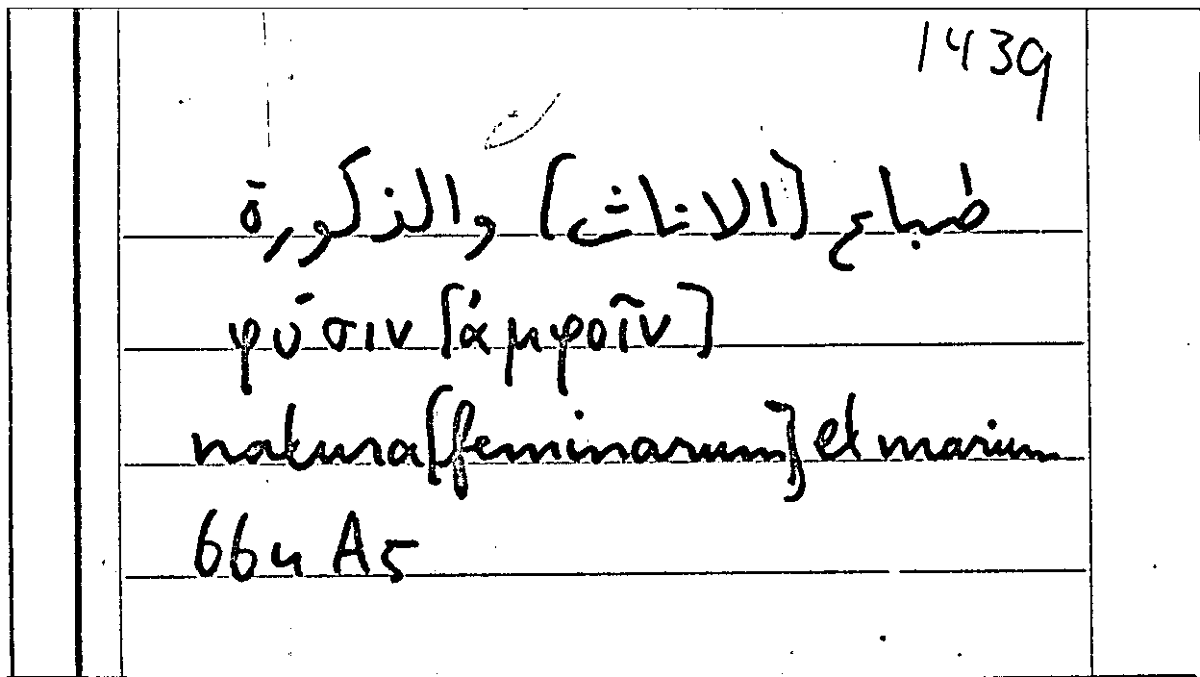 1439
طباع [الاناث] والذكورة
φύσιν [ἀμφοῖν]
natura [feminarum] et marium
664 A5